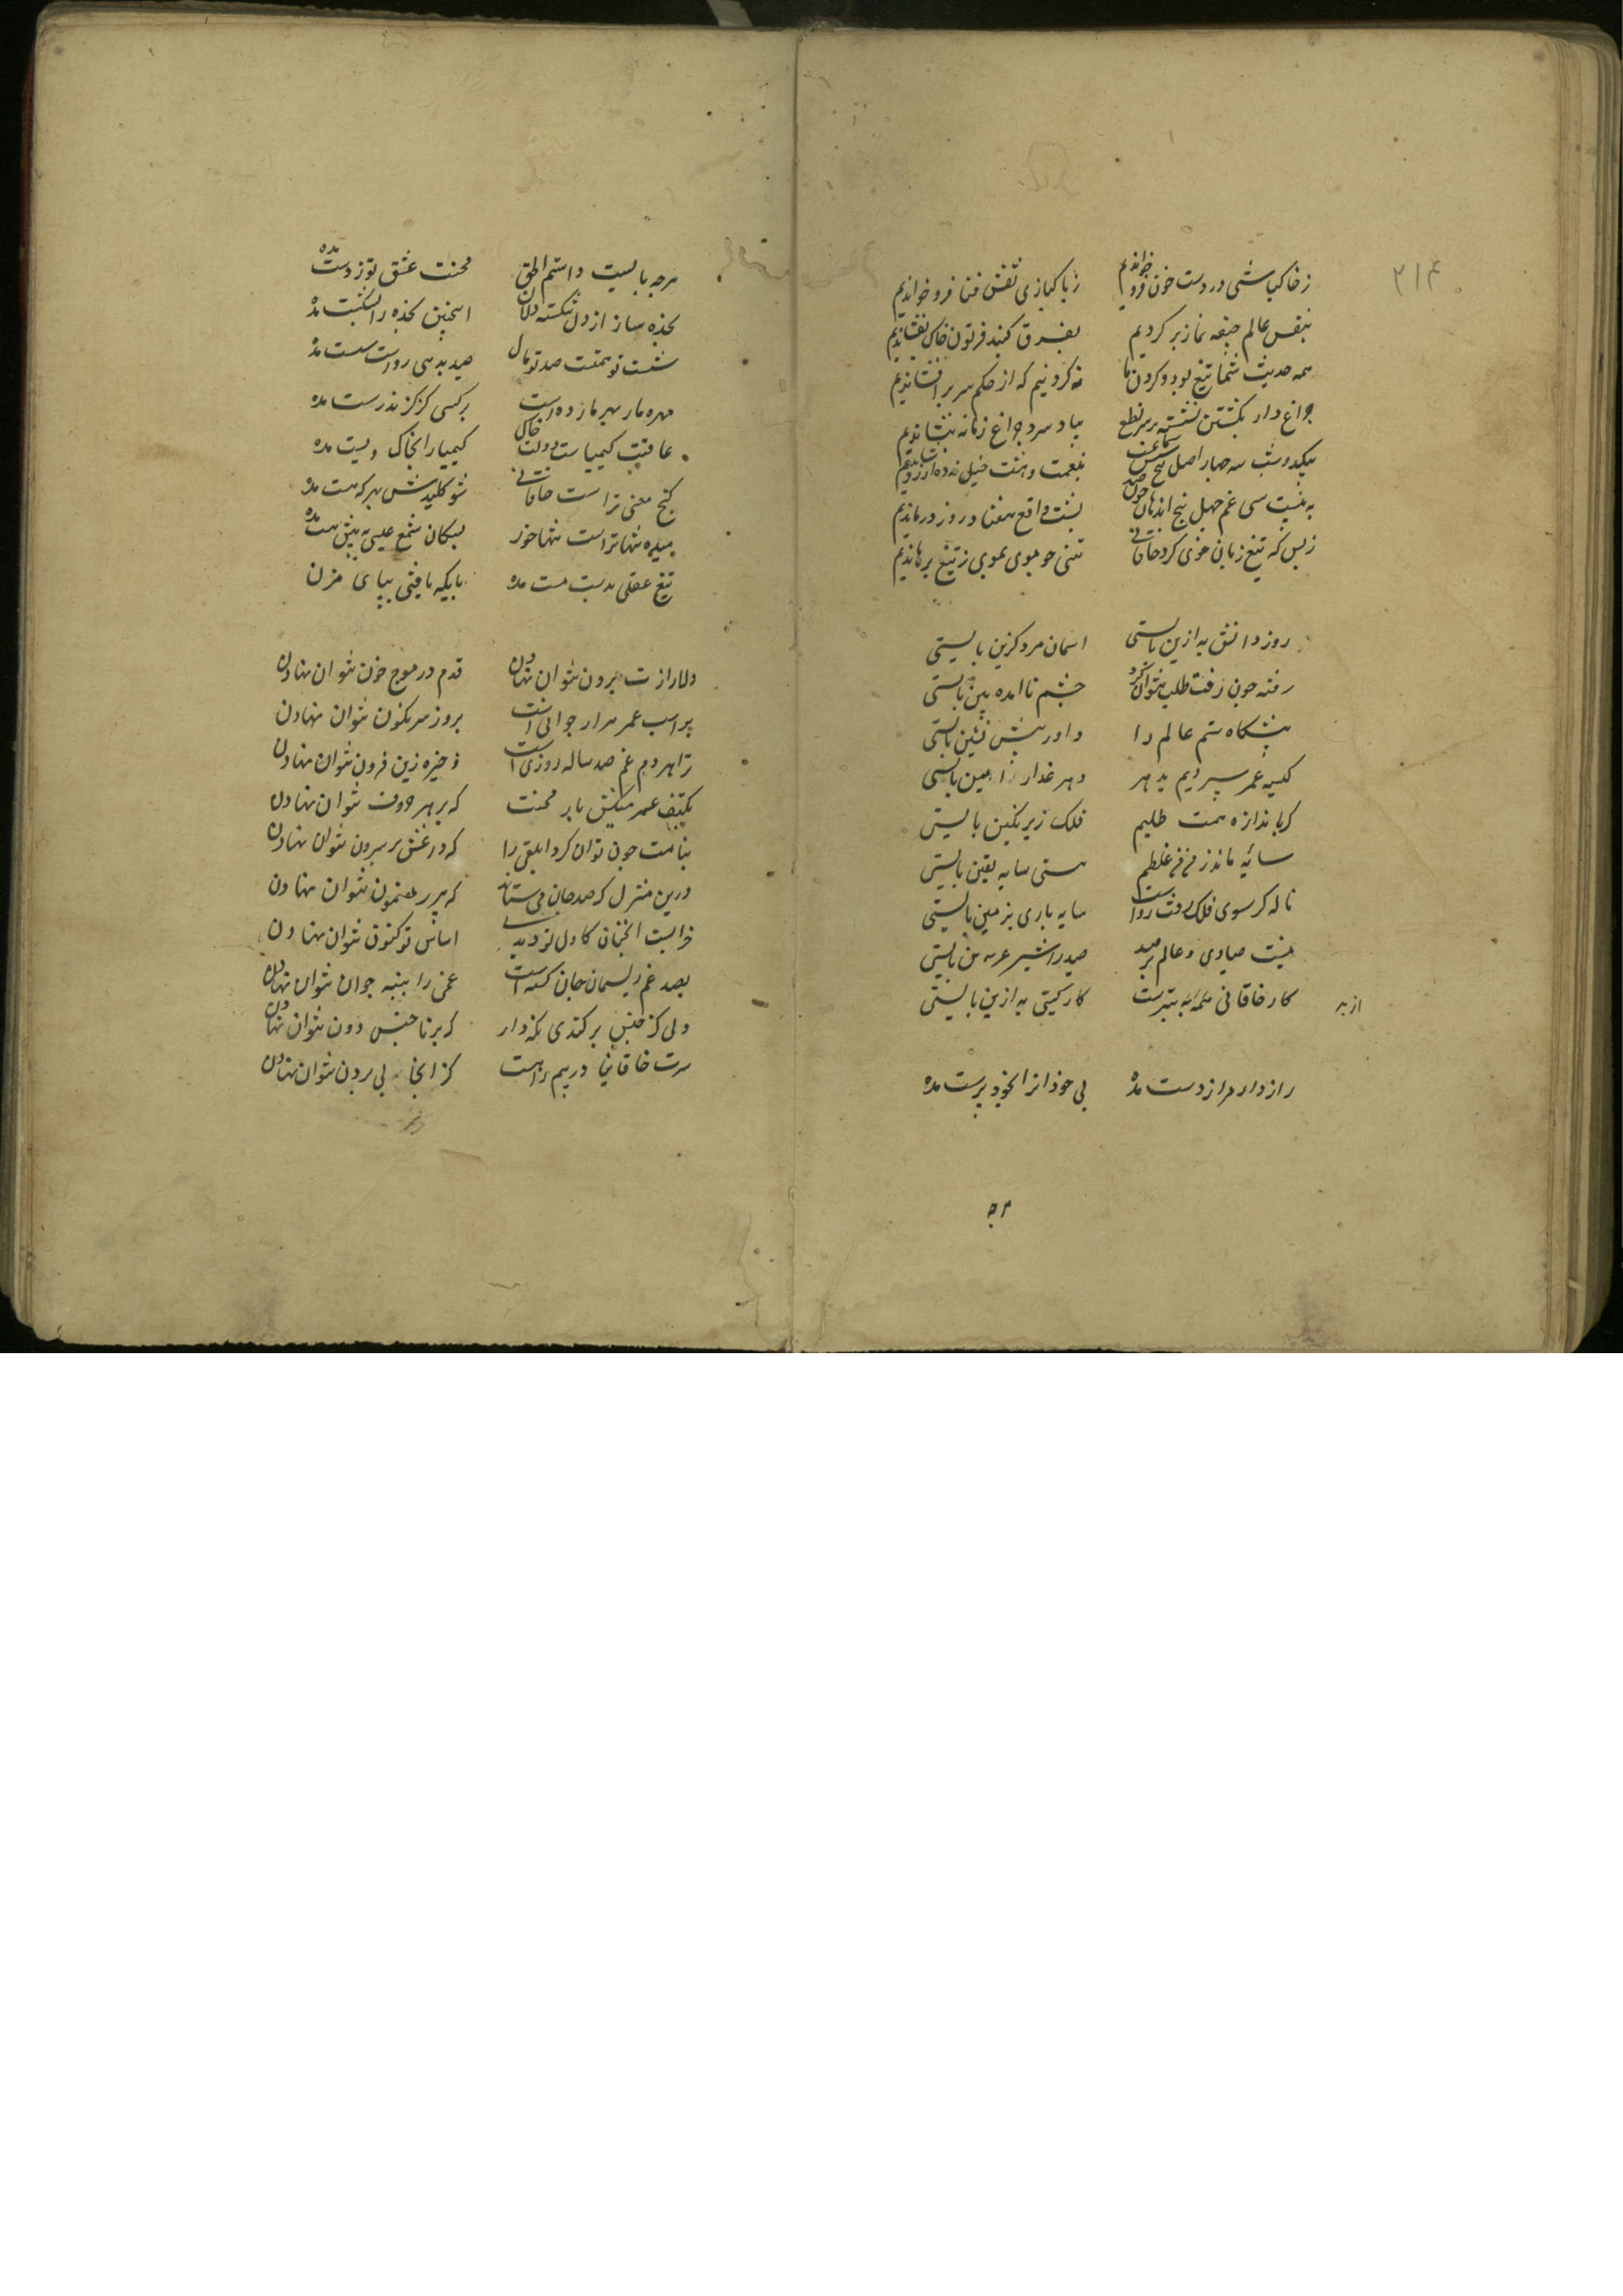 ۲۱۴
ز خاکپاشی در دست خون فرو خواندیم ز پاکبازی نقش فنا فرو خواندیم
بنفس عالم جیفه نماز بر کردیم بفرق کنبد فرتوت خاک بفشاندیم
همه حدیث شما تیغ بود و کردن ما نه کردنیم که از حکم سر برافشاندیم
چراغ دار بکشتن نشسته بر سر نطع بباد سرد چراغ زمانه بنشاندیم
بیک دو شب سه حصار اصل پنج بنعمت و هشت
به بیست سی غم چهل پنج اندهان چون صید بشست واقع هفتاد روز درماندیم
ز بس که تیغ زبان خوی کرد خاقانی تنی چو موی بموی ز تیغ برهاندیم
روز دانش به ازین بایستی اسمان مرد کزین بایستی
رفته چون رفت طلب نتوان کرد چشم نا امده بین بایستی
پیشکاه ستم عالم را داور پیش نشین بایستی
کیسه عمر سپردیم بدهر دهر غدار امین بایستی
کر باندازه همت طلبیم فلک زیر نکین بایستی
سایه ماند ز من من غلطم هستی سایه یقین بایستی
ناله کر سوی فلک رفت رواست سایه باری بزمین بایستی
نیست صیادی و عالم پر صید صید را شیر عرین بایستی
کار خاقانی بترست کار کیتی به ازین بایستی
از بر
راز دار مرا ز دست مده بی خودانرا بخود پرست مده
هرچه بایست داشتم الحق محنت عشق تو ز دست مده
بخده ساز از دل شکسته دلان اینچنین بخده را شکست مده
شست تو همت صد تو مال صید به می رواست شست مده
مهره مار بهر مار زده است بر کسی کز کزند رست مده
عافیت کیمیاست دولت خاک کیمیا را بخاک پست مده
کنج معنی تراست خاقانی شو کلیدش بهر که هست مده
میده تنها تراست تنها خور بسکان شمع عیسی
تیغ عقلی بدست مست مده بایکه یافتی بپای مزن
دلا راز ت برون نتوان نهادن قدم در موج خون نتوان نهادن
بر اسب عمر هرا ر جوانی است بروز سرنکون نتوان نهادن
ترا هر دم غم صد ساله روزی است ذخیره زین فزون نتوان نهادن
بکتف عمر میکش بار محنت که بر هر نتوان نهادن
بنامت چون توان کرد ابلقی را که داغش بر سرون نتوان نهادن
درین منزل که صد جان می ستانند که بر مضمون نتوان نهادن
خرابست انچنان کاول تو دیدی اساس نو کنون نتوان نهادن
بصد غم ریسمان جان کسسته است غمی را پنبه چون نتوان نهادن
دلی کز جنس برکندی نکه دار که بر ناجنس دون نتوان نهادن
سرت خاقانیا در بیم راهست کز انجا پی برون نتوان نهادن